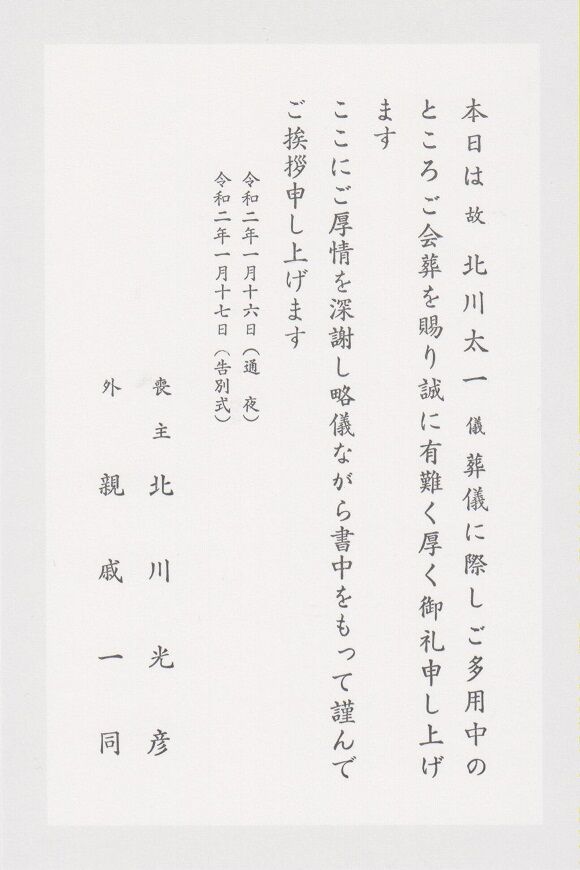 本日は 故 北川太一 儀 葬儀に際しご多用中の
ところご会葬を賜り誠に有難く厚く御礼申し上げ
ます
ここにご厚情を深謝し略儀ながら書中をもって謹んで
ご挨拶申し上げます
令和二年一月十六日（通 夜）
令和二年一月十七日（告別式）
喪主 北川光彦
外 親戚一同